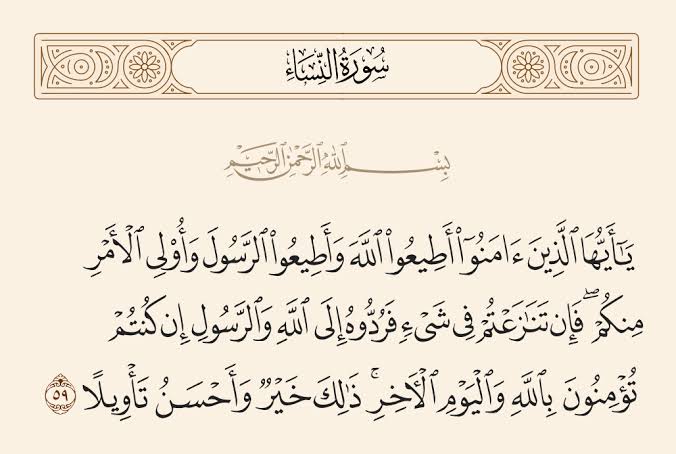 سُورَةُ النِّسَاءِ
بِسْمِ ٱللَّهِ ٱلرَّحْمَٰنِ ٱلرَّحِيمِ
يَـٰٓأَيُّهَا ٱلَّذِينَ ءَامَنُوٓا۟ أَطِيعُوا۟ ٱللَّهَ وَأَطِيعُوا۟ ٱلرَّسُولَ وَأُو۟لِى ٱلْأَمْرِ
مِنكُمْ ۖ فَإِن تَنَـٰزَعْتُمْ فِى شَىْءٍ فَرُدُّوهُ إِلَى ٱللَّهِ وَٱلرَّسُولِ إِن كُنتُمْ
تُؤْمِنُونَ بِٱللَّهِ وَٱلْيَوْمِ ٱلْـَٔاخِرِ ۚ ذَٰلِكَ خَيْرٌ وَأَحْسَنُ تَأْوِيلًا ٥٩